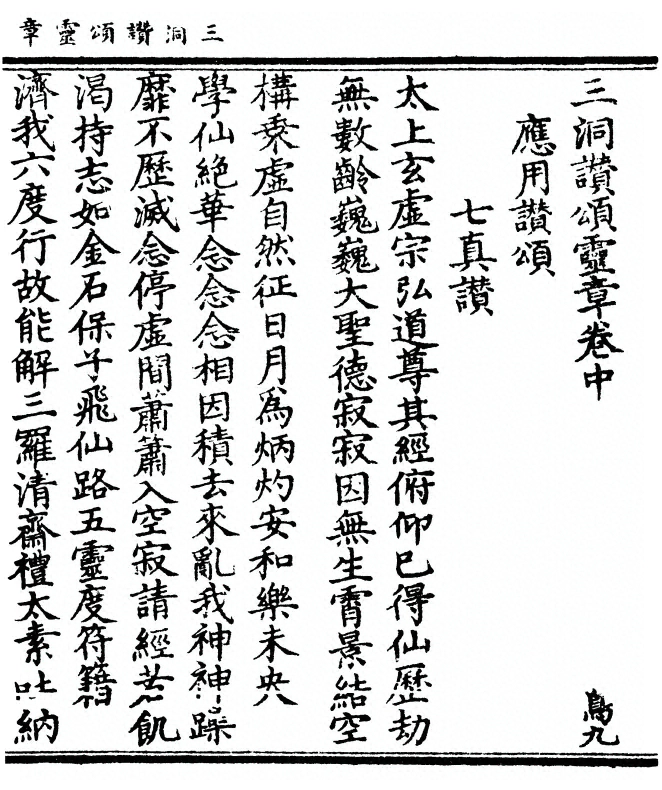 三洞讚頌靈章
三洞讚頌靈章卷中 鳥九
應用讚頌
七真讚
太上玄虛宗弘道尊其經俯仰已得仙歷劫
無數齡巍巍大聖德寂寂因無生霄景結空
構乘虛自然征日月爲炳灼安和樂未央
學仙絕華念念念相因積去來亂我神神躁
靡不歷滅念停虛閒蕭蕭入空寂請經若飢
渴持志如金石保子飛仙路五靈度符籍
濟我六度行故能解三羅清齋禮太素吐納